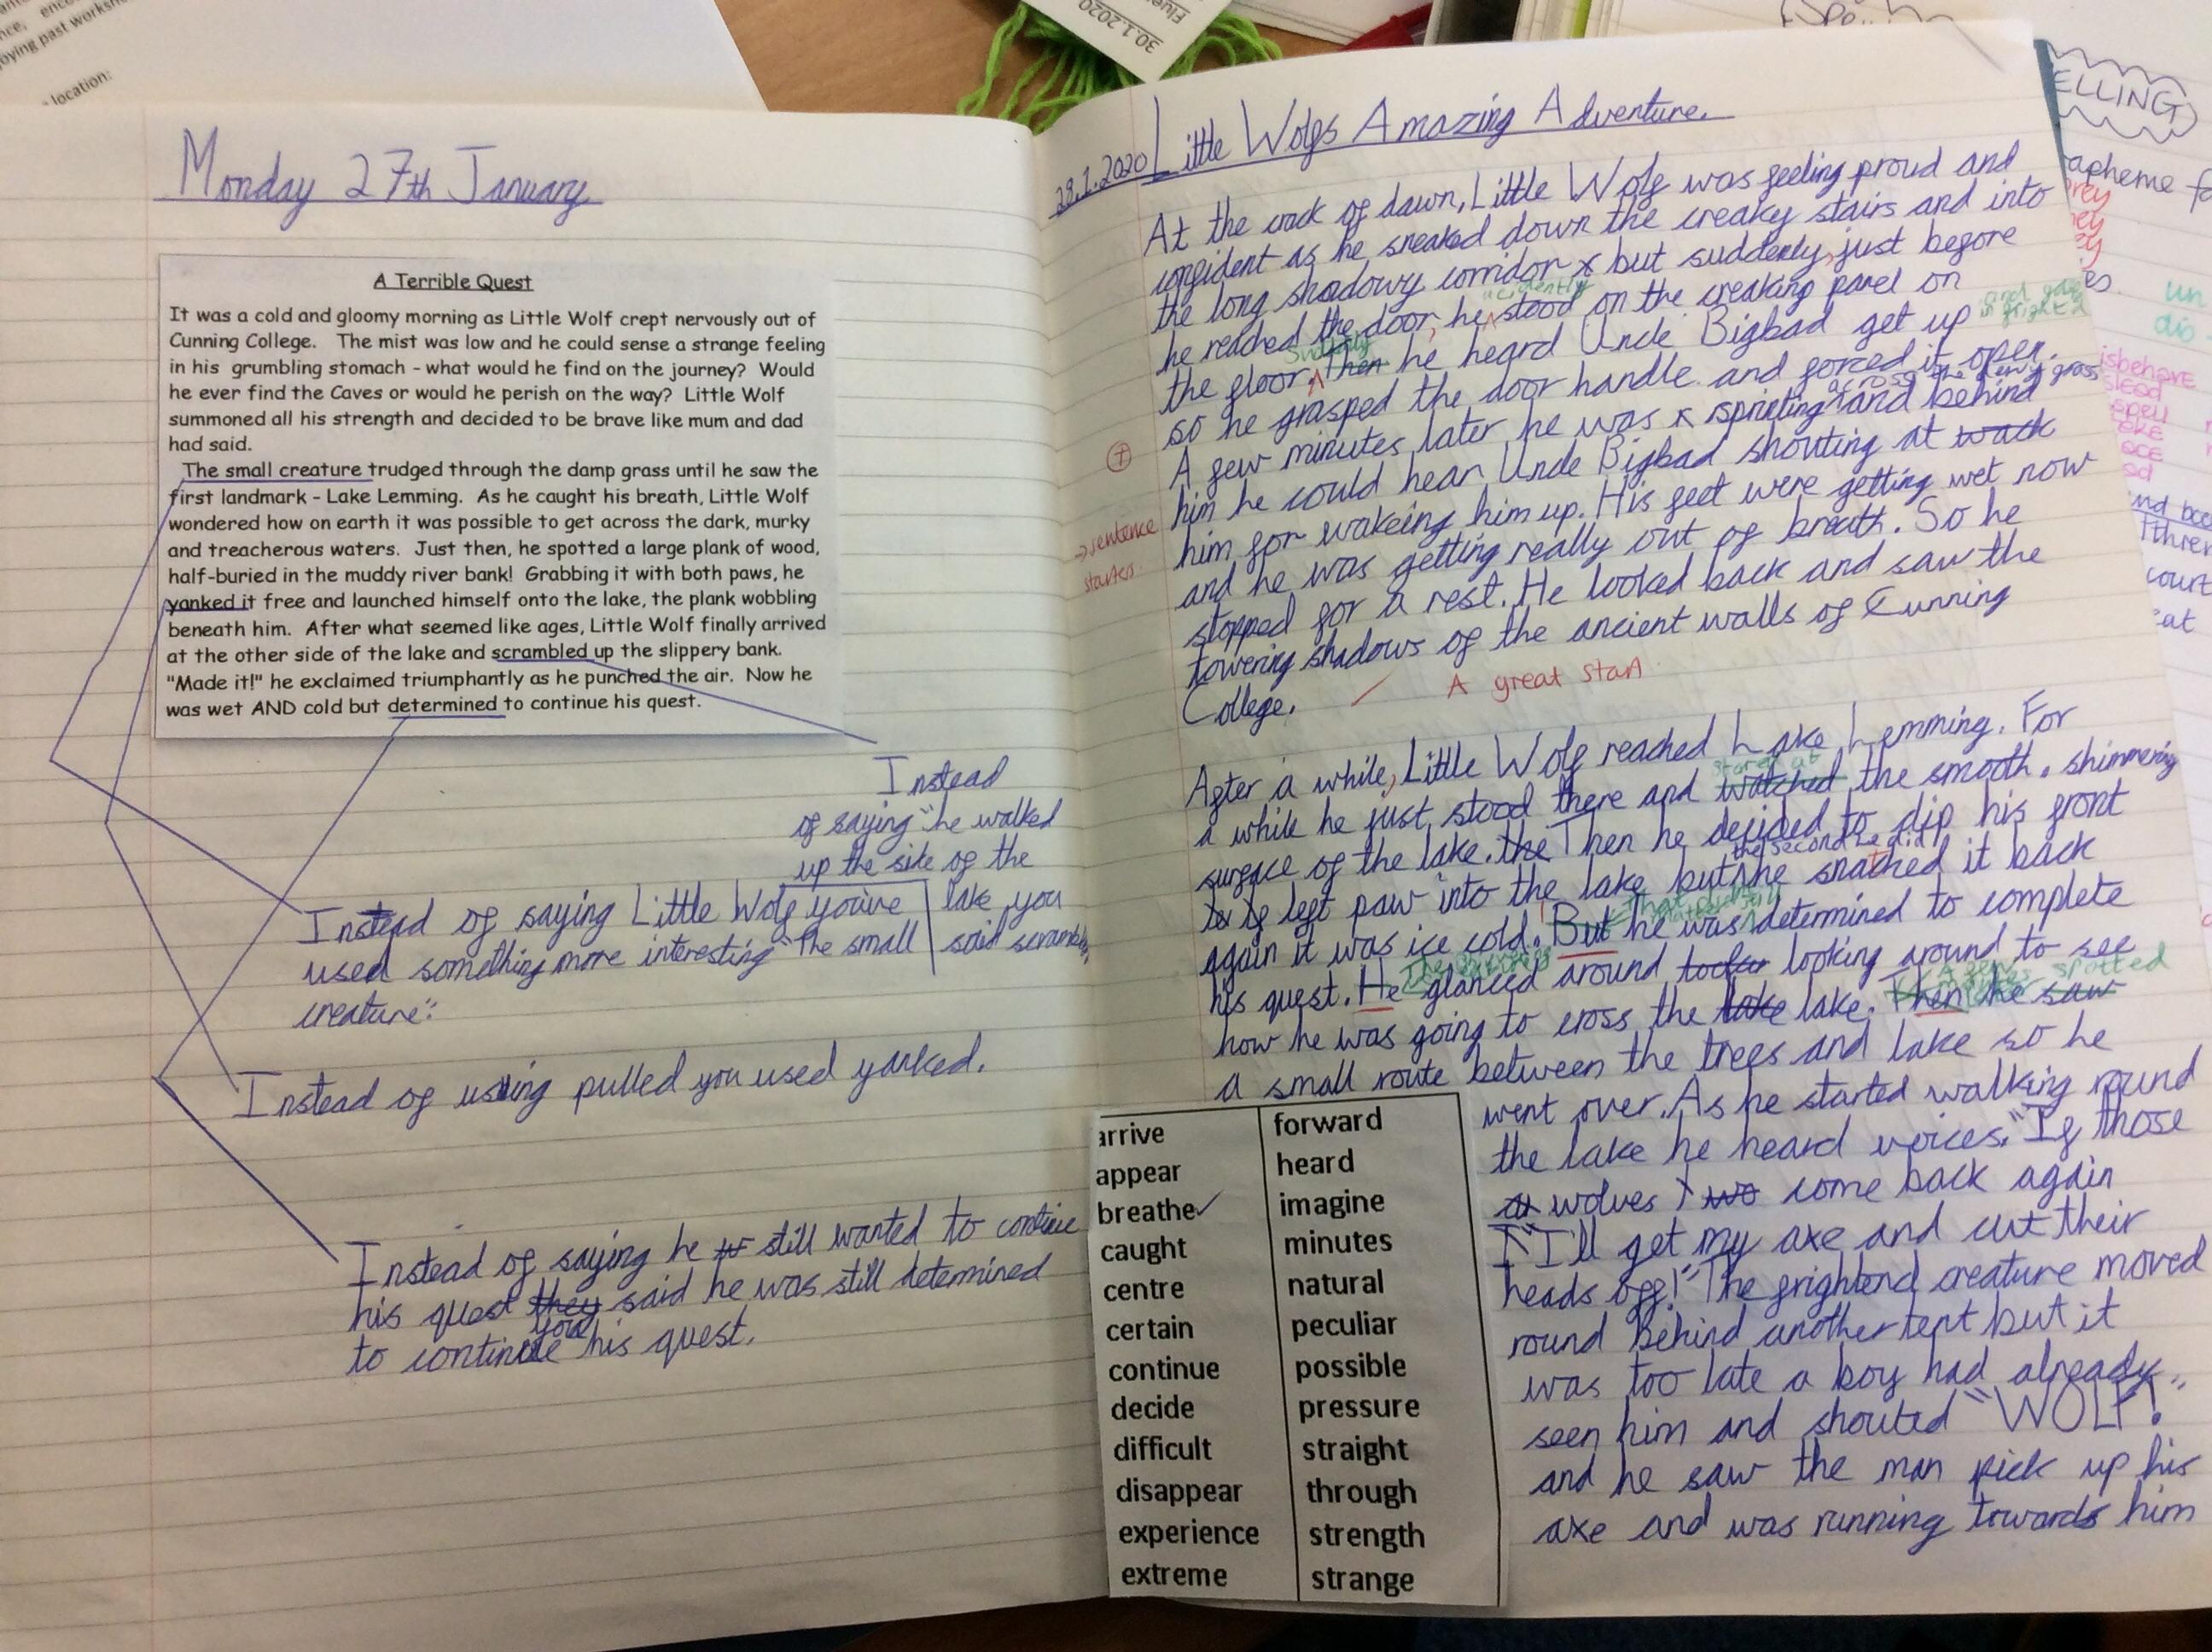 location:
30.1.2020
Monday 27th January
A Terrible Quest
It was a cold and gloomy morning as Little Wolf crept nervously out of
Cunning College. The mist was low and he could sense a strange feeling
in his grumbling stomach - what would he find on the journey? Would
he ever find the Caves or would he perish on the way? Little Wolf
summoned all his strength and decided to be brave like mum and dad
had said.
The small creature trudged through the damp grass until he saw the
first landmark - Lake Lemming. As he caught his breath, Little Wolf
wondered how on earth it was possible to get across the dark, murky
and treacherous waters. Just then, he spotted a large plank of wood,
half-buried in the muddy river bank! Grabbing it with both paws, he
yanked it free and launched himself onto the lake, the plank wobbling
beneath him. After what seemed like ages, Little Wolf finally arrived
at the other side of the lake and scrambled up the slippery bank.
"Made it!" he exclaimed triumphantly as he punched the air. Now he
was wet AND cold but determined to continue his quest.
Instead
of saying "he walked
up the side of the
lake you
said scrambled
Instead of saying Little Wolf you've
used something more interesting "The small
creature".
Instead of using pulled you used yanked.
Instead of saying he still wanted to continue
his quest they said he was still determined
you
to continue his quest.
28.1.2020 Little Wolfs Amazing Adventure.
At the crack of dawn, Little Wolf was feeling proud and
confident as he sneaked down the creaky stairs and into
the long shadowy corridor x but suddenly, just before
acidently
he reached the door, he stood on the creaking panel on
Suddenly
the floor. Then he heard Uncle Bigbad get up
in fright
so he grasped the door handle and forced it open.
across the dewy grass
A few minutes later he was x sprinting and behind
him he could hear Uncle Bigbad shouting at wack
him for wakeing him up. His feet were getting wet now
→ sentence
starters.
and he was getting really out of breath. So he
stopped for a rest. He looked back and saw the
towering shadows of the ancient walls of Cunning
College.
A great start
After a while, Little Wolf reached Lake Lemming. For
stared at
a while he just stood there and watched the smooth, shimmering
surface of the lake. the Then he decided to dip his front
the second he did
left paw into the lake but he snatched it back
again it was ice cold. But he was determined to complete
his quest. He glanced around looking around to see
A few
spotted
how he was going to cross the lake lake. Then he saw
a small route between the trees and lake so he
went over. As he started walking round
the lake he heard voices. "If those
wolves come back again
I'll get my axe and cut their
heads off!" The frightend creature moved
round behind another tent but it
was too late a boy had already
seen him and shouted "WOLF!"
and he saw the man pick up his
axe and was running towards him
arrive forward
appear heard
breathe imagine
caught minutes
centre natural
certain peculiar
continue possible
decide pressure
difficult straight
disappear through
experience strength
extreme strange
ELLING
apheme
court